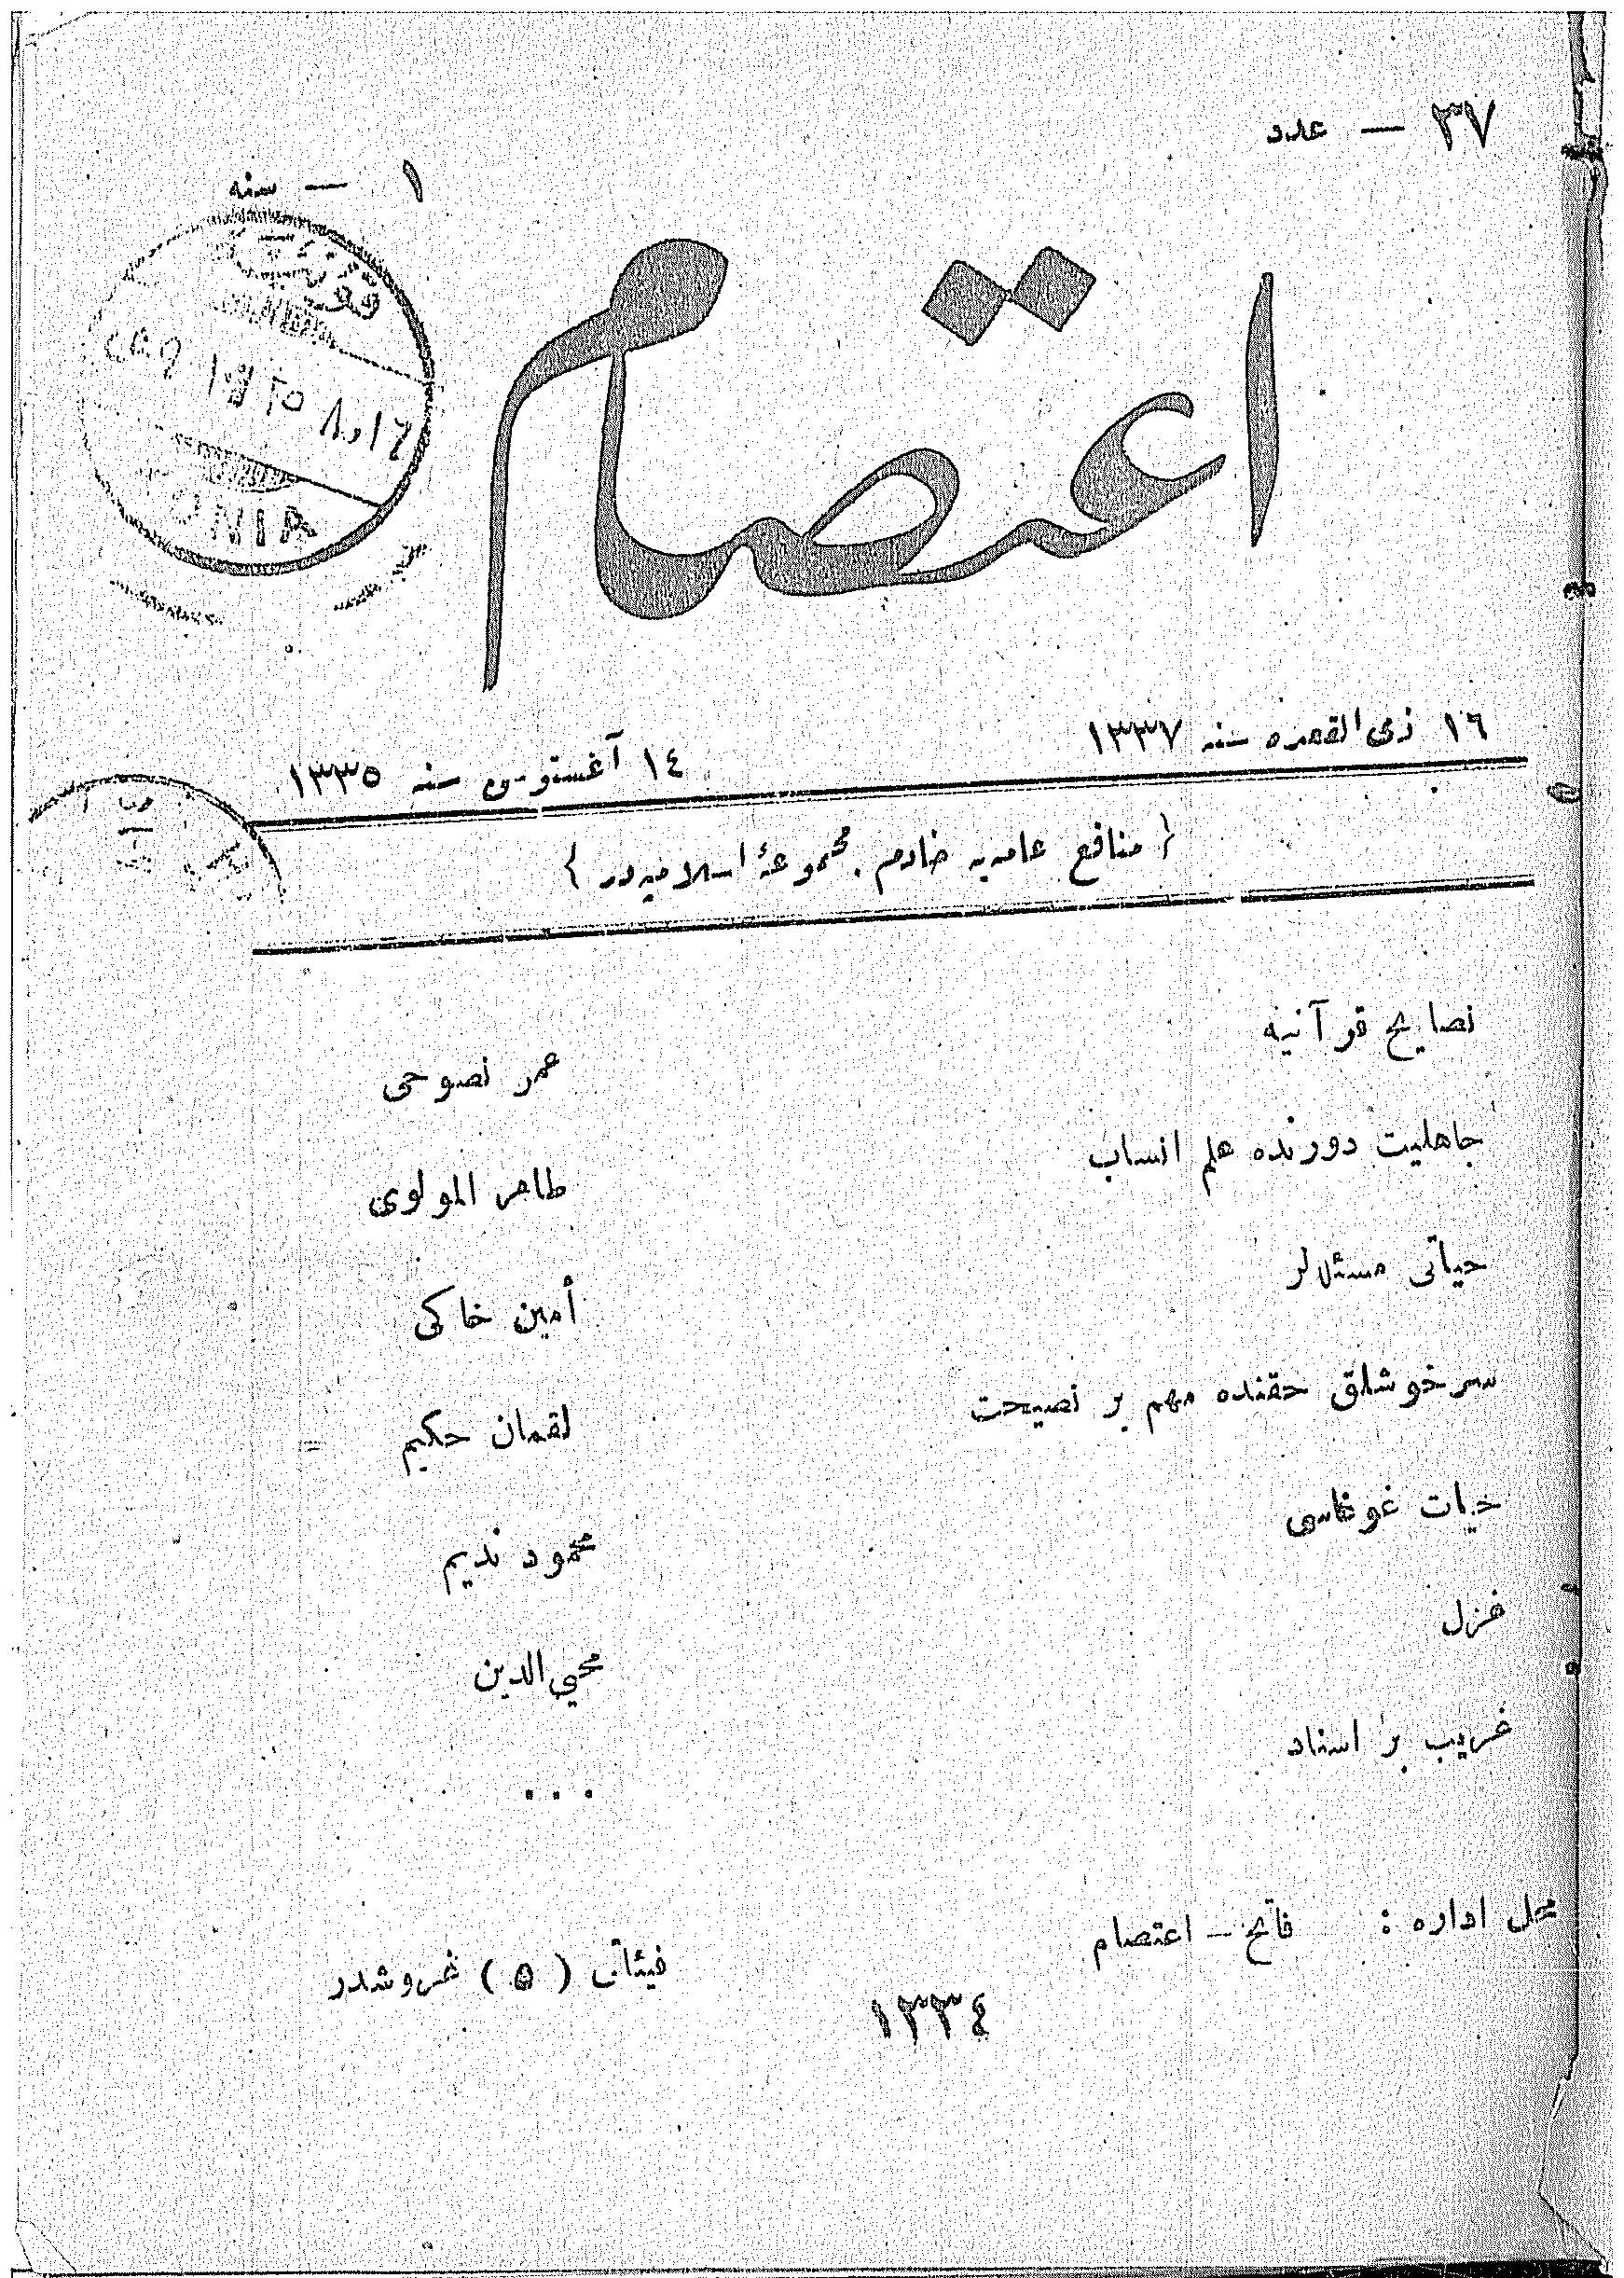 ٣٧ — عدد
١ — سنه
قونيه
KONIA
اعتصام
١٦ ذى القعده سنه ١٣٣٧
١٤ آغستوس سنه ١٣٣٥
{ منافع عامه‌يه خادم مجموعهٔ اسلاميه‌در }
نصايح قرآنيه
عمر نصوحى
جاهليت دورنده علم انساب
طاهر المولوى
حياتى مسئله‌لر
أمين خاكى
سرخوشلق حقنده مهم بر نصيحت
لقمان حكيم
حيات غوغاسى
محمود نديم
غزل
محيي الدين
غريب بر اسناد
. . .
محل اداره : فاتح — اعتصام
فيئاتى ( ٥ ) غروشدر
١٣٣٤